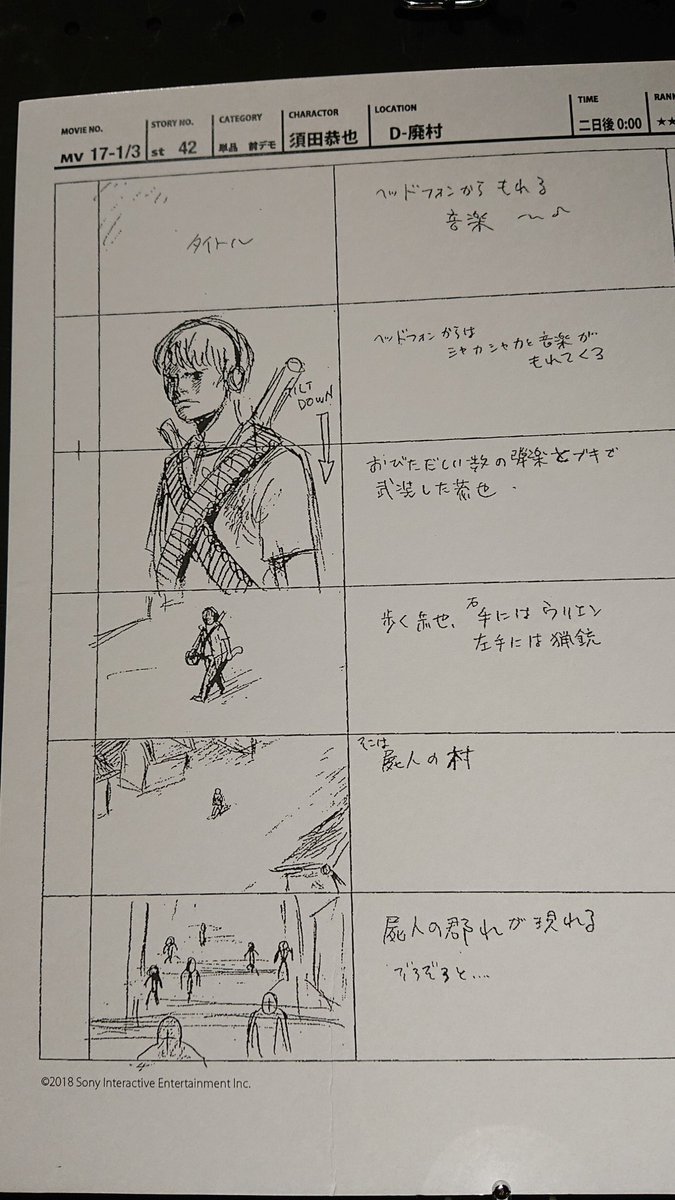 MOVIE NO.
MV 17-1/3
STORY NO.
st 42
CATEGORY
単品 前デモ
CHARACTOR
須田恭也
LOCATION
D-廃村
TIME
二日後 0:00
RANK
★★
タイトル
ヘッドフォンから もれる
音楽 〜♪
ヘッドフォンからは
シャカシャカと音楽が
もれてくる
TILT
DOWN
おびただしい数の弾薬とブキで
武装した恭也.
歩く恭也、右手には ウリエン
左手には猟銃
そこは
屍人の村
屍人の郡れが現れる
ぞろぞろと....
©2018 Sony Interactive Entertainment Inc.